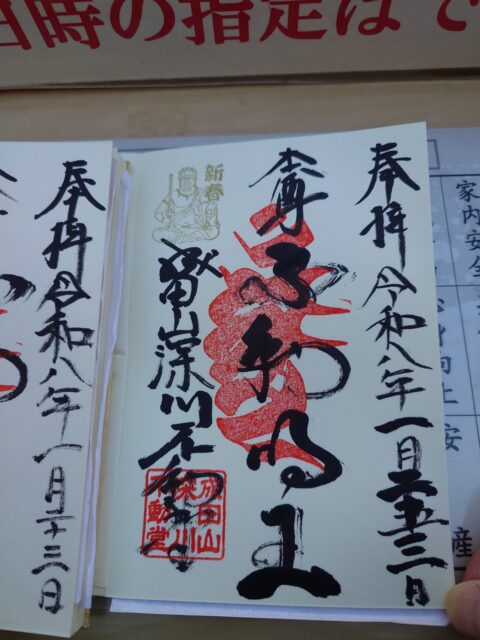 日時の指定はで
奉拝 令和八年一月二十三日
本尊 不動明王
新春
成田山深川不動堂
成田山
深川
不動堂
奉拝 令和八年一月二十三日
家内安全
身向上
安
産